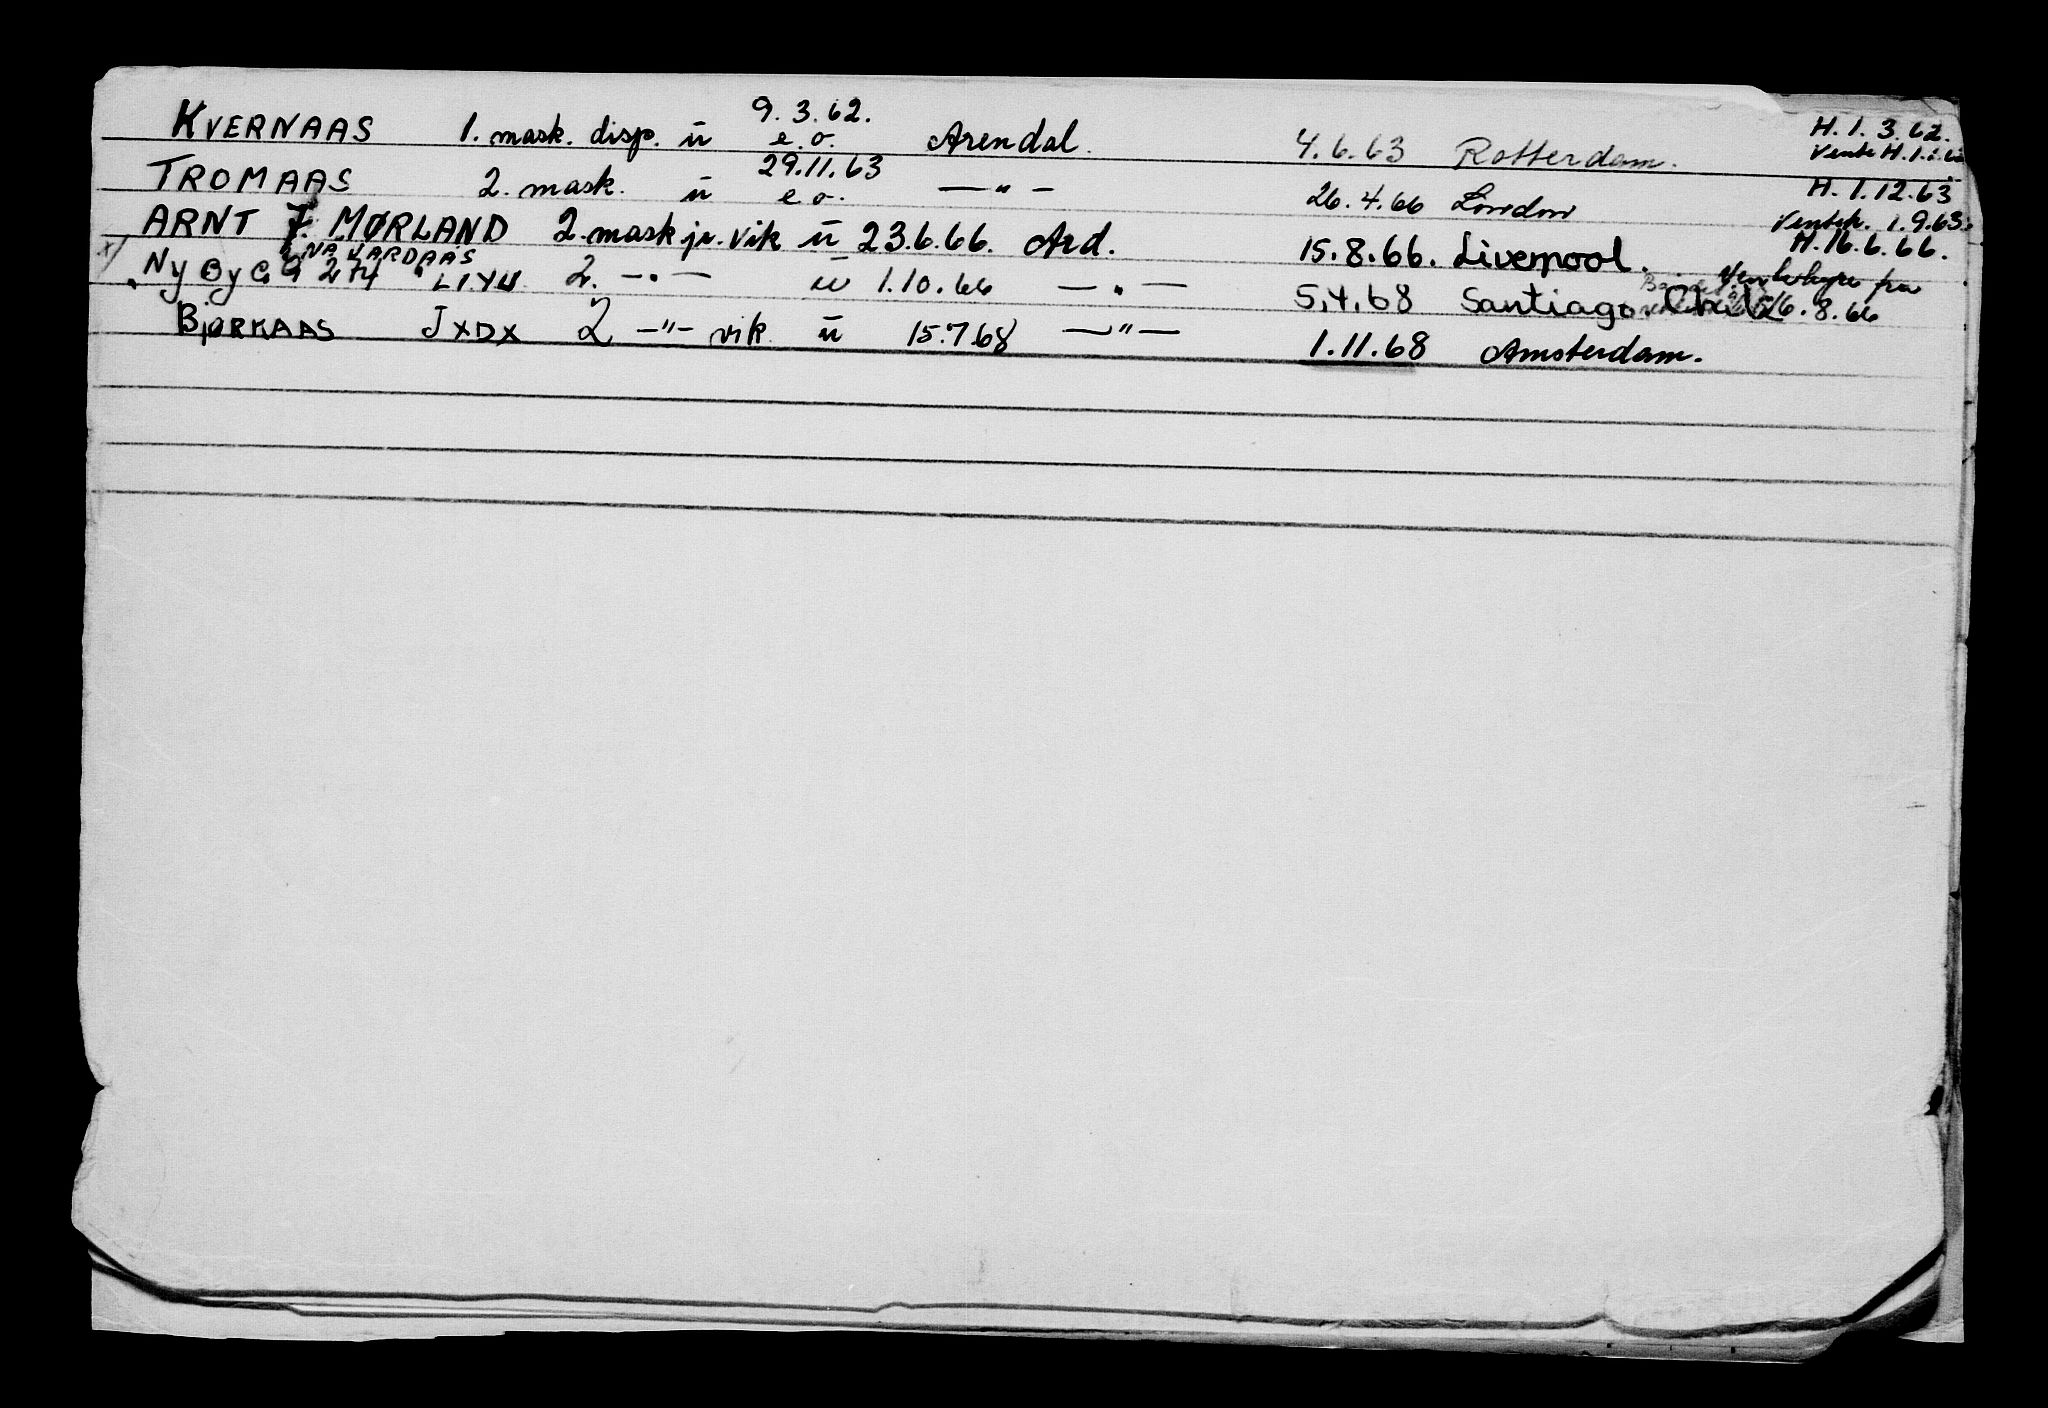 KVERNAAS 1. mask. disp. ū 9.3.62. e.o. Arendal. 4.6.63 Rotterdam. H. 1.3.62.
Vente H. 1.
TROMAAS 2. mask. ū 29.11.63 e.o. — " — 26.4.66 London H. 1.12.63
Venteh. 1.9.63.
ARNT J. MØRLAND 2. mask jr. vik ū 23.6.66. Ard. 15.8.66. Liverpool. H. 16.6.66.
x/ NyByGG 274 NA VARDAAS LIYU 2. — " — ū 1.10.66 — " — 5.4.68 Santiago Chile Ventehyre fra 26.8.66
BJØRKAAS JXDX 2 — " — vik ū 15.7.68 — " — 1.11.68 Amsterdam.